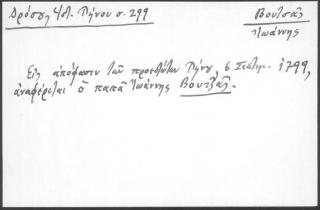 Δρόσου Ἱστ. Τήνου σ. 299
Βουτσᾶς
Ἰωάννης
Εἰς ἀπόφασιν τῶν προεστώτων Τήνου, 6 Σεπτεμ. 1799,
ἀναφέρεται ὁ παπᾶ Ἰωάννης Βουτζᾶς.